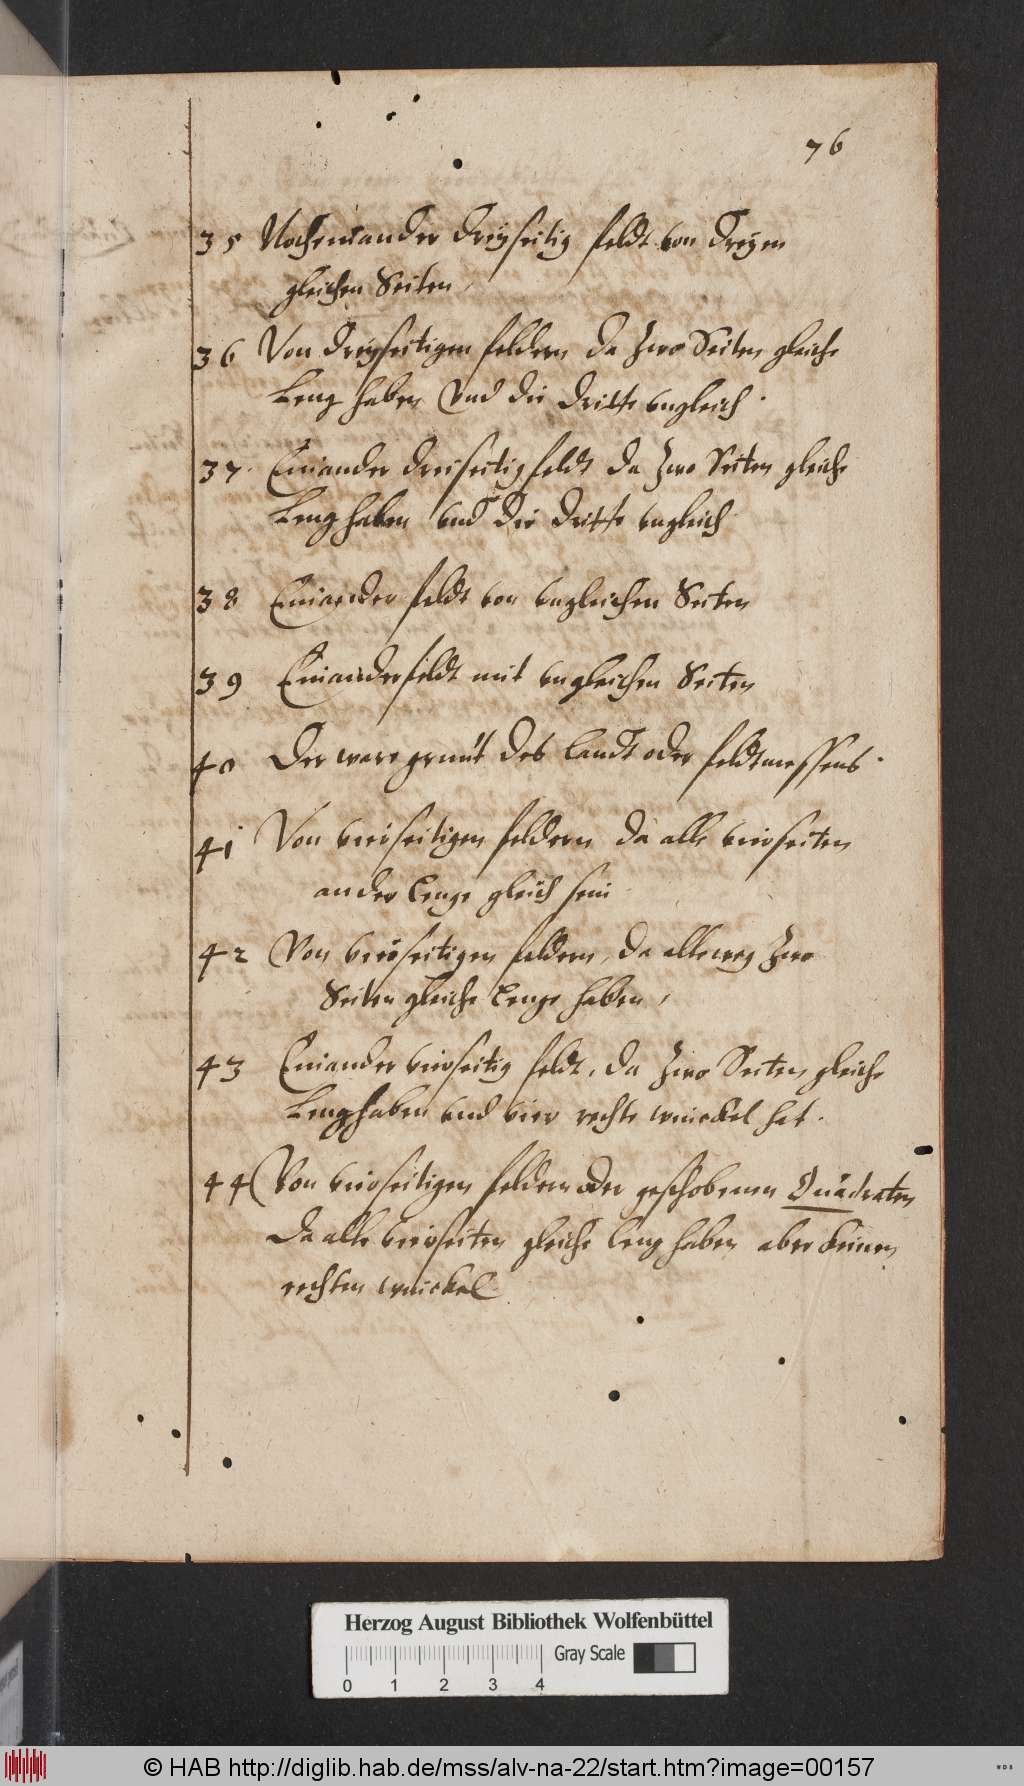 76
35 Noch ein ander dreyseitig feldt von dreyen
gleichen Seiten,
36 Von dreyseitigen feldern da zwo Seiten gleiche
Leng haben Vnd die dritte vngleich.
37. Ein ander dreiseitig feldt da zwo Seiten gleiche
Leng haben vnd die dritte vngleich
38 Ein ander feldt von vngleichen Seiten
39 Ein ander feldt mit vngleichen Seiten
40 Der ware grunt des Landt oder feldtmessens.
41 Von vierseitigen feldern da alle vierseiten
an der Lenge gleich sein
42 Von vierseitigen feldern, da alleweg zwo
Seiten gleiche Lenge haben,
43 Ein ander vierseitig feldt, da zwo Seiten gleiche
Leng haben vnd vier rechte winckel hat.
44 Von vierseitigen feldern oder geschobenen Quadraten
da alle vierseiten gleiche leng haben aber keinen
rechten winckel.
Herzog August Bibliothek Wolfenbüttel
Gray Scale
0 1 2 3 4
© HAB http://diglib.hab.de/mss/alv-na-22/start.htm?image=00157